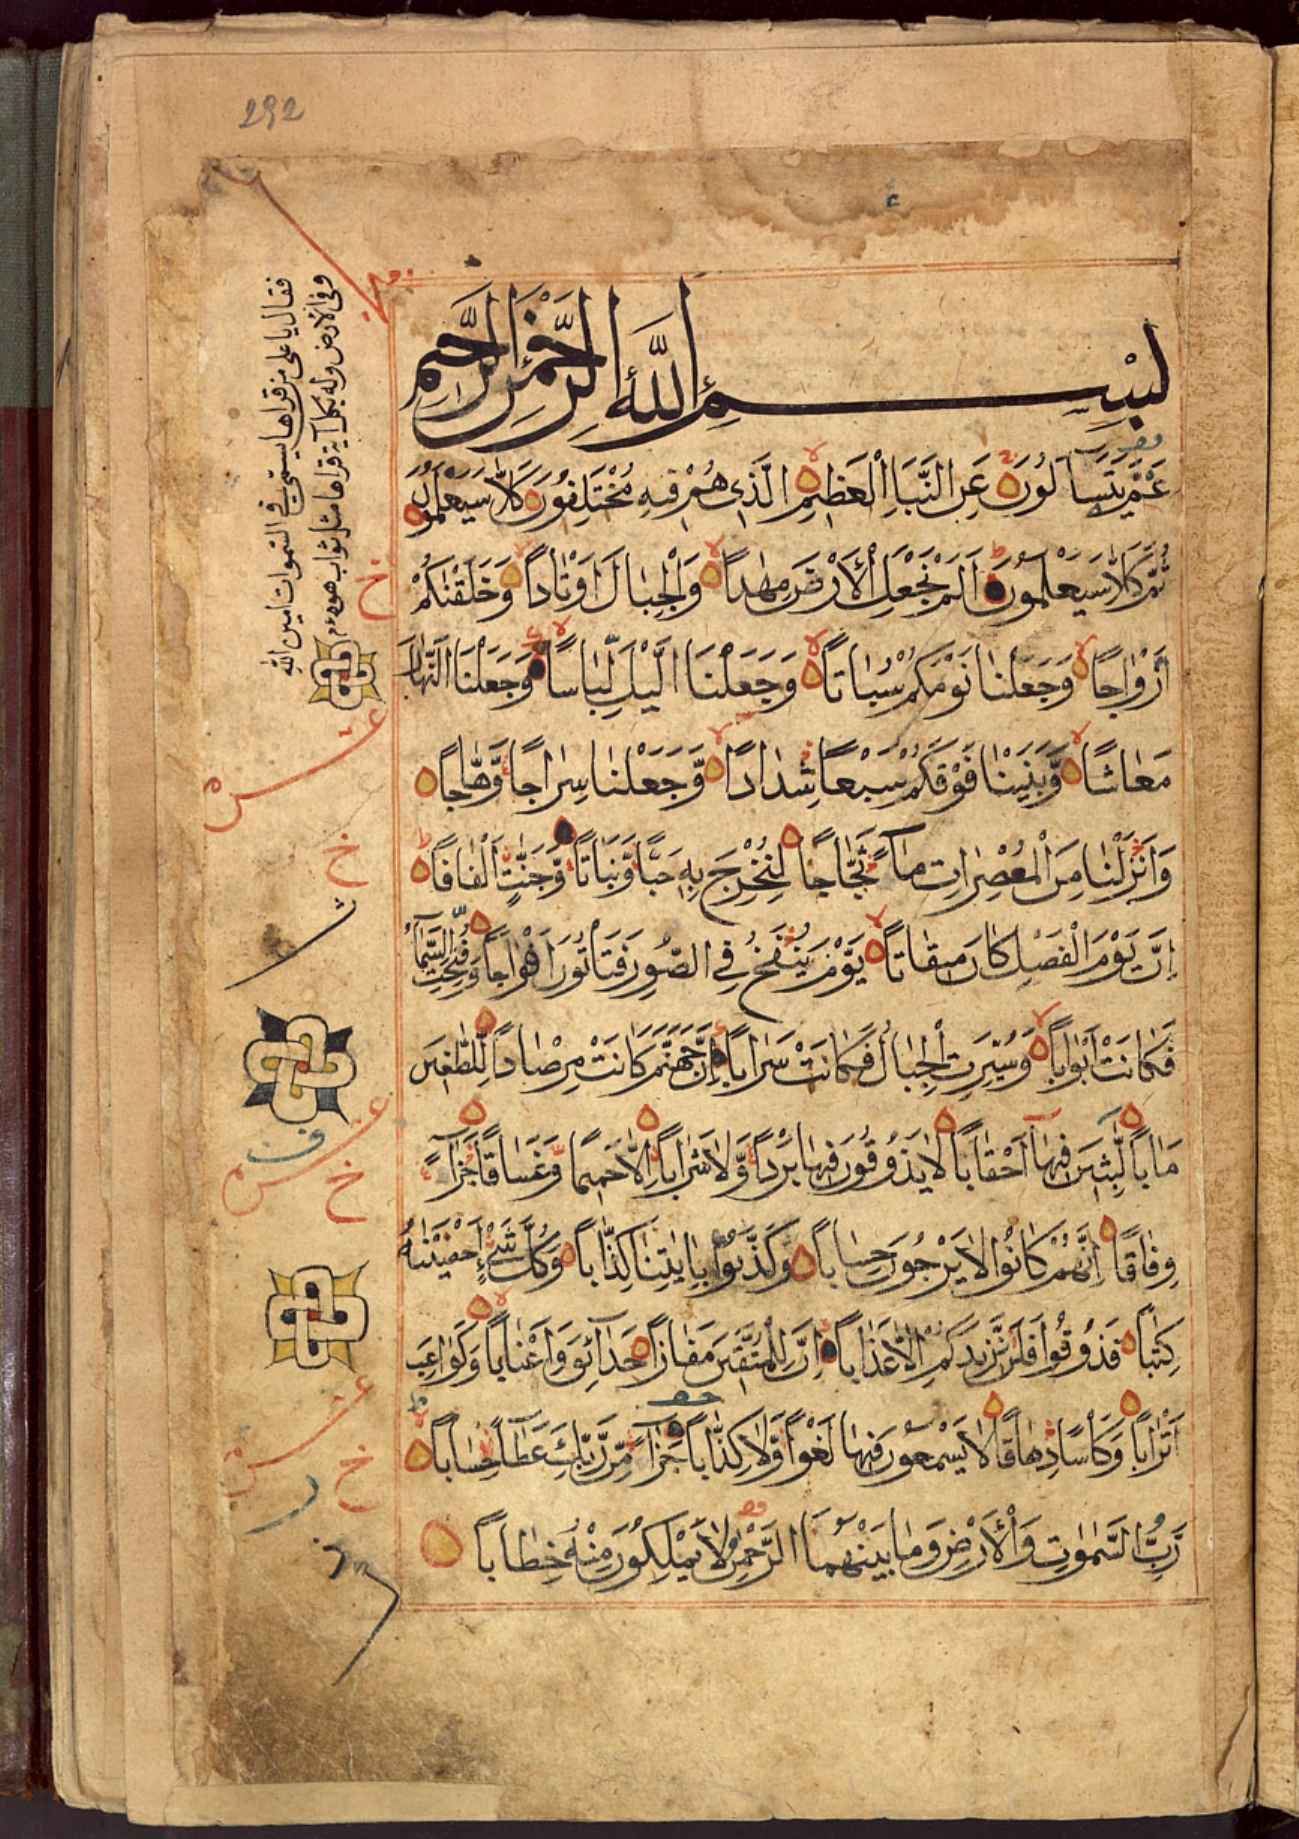 292
بِسْمِ اللَّهِ الرَّحْمٰنِ الرَّحِيمِ
عَمَّ يَتَسَاءَلُونَ عَنِ النَّبَاِ الْعَظِيمِ الَّذِى هُمْ فِيهِ مُخْتَلِفُونَ كَلَّا سَيَعْلَمُونَ
ثُمَّ كَلَّا سَيَعْلَمُونَ اَلَمْ نَجْعَلِ الْأَرْضَ مِهٰداً وَالْجِبَالَ اَوْتَاداً وَخَلَقْنٰكُمْ
اَزْوَاجًا وَجَعَلْنَا نَوْمَكُمْ سُبَاتًا وَجَعَلْنَا الَّيْلَ لِبَاسًا وَجَعَلْنَا النَّهَارَ
مَعَاشًا وَّبَنَيْنَا فَوْقَكُمْ سَبْعًا شِدَادًا وَّجَعَلْنَا سِرَاجًا وَّهَّاجًا
وَاَنْزَلْنَا مِنَ الْمُعْصِرَاتِ مَآءً ثَجَّاجًا لِنُخْرِجَ بِهِ حَبًّا وَّنَبَاتًا وَّجَنّٰتٍ اَلْفَافًا
اِنَّ يَوْمَ الْفَصْلِ كَانَ مِيقَاتًا يَوْمَ يُنْفَخُ فِي الصُّورِ فَتَأْتُونَ اَفْوَاجًا وَّفُتِحَتِ السَّمَآءُ
فَكَانَتْ اَبْوَاباً وَسُيِّرَتِ الْجِبَالُ فَكَانَتْ سَرَاباً اِنَّ جَهَنَّمَ كَانَتْ مِرْصَاداً لِّلطّٰغِينَ
مَاٰباً لّٰبِثِينَ فِيهَآ اَحْقَاباً لَا يَذُوقُونَ فِيهَا بَرْداً وَّلَا شَرَاباً اِلَّا حَمِيمًا وَّغَسَاقًا جَزَآءً
وِفَاقًا اِنَّهُمْ كَانُوْا لَا يَرْجُونَ حِسَاباً وَكَذَّبُوْا بِاٰيٰتِنَا كِذَّاباً وَكُلَّ شَيْءٍ اَحْصَيْنٰهُ
كِتٰباً فَذُوقُوا فَلَنْ نَّزِيدَكُمْ اِلَّا عَذَاباً اِنَّ لِلْمُتَّقِينَ مَفَازاً حَدَآئِقَ وَاَعْنَاباً وَكَوَاعِبَ
اَتْرَاباً وَكَأْسًا دِهَاقًا لَا يَسْمَعُونَ فِيهَا لَغْواً وَّلَا كِذّٰباً جَزَآءً مِّنْ رَّبِّكَ عَطَآءً حِسَاباً
رَبِّ السَّمٰوٰتِ وَالْأَرْضِ وَمَا بَيْنَهُمَا الرَّحْمٰنِ لَا يَمْلِكُونَ مِنْهُ خِطَاباً
فقال يا على من قراها يسمى فى السموات امين الله
وفى الارض وله بكل آية قراها مثل ثواب هود
خ
عشر
خ
عشر
خ
عشر
خ